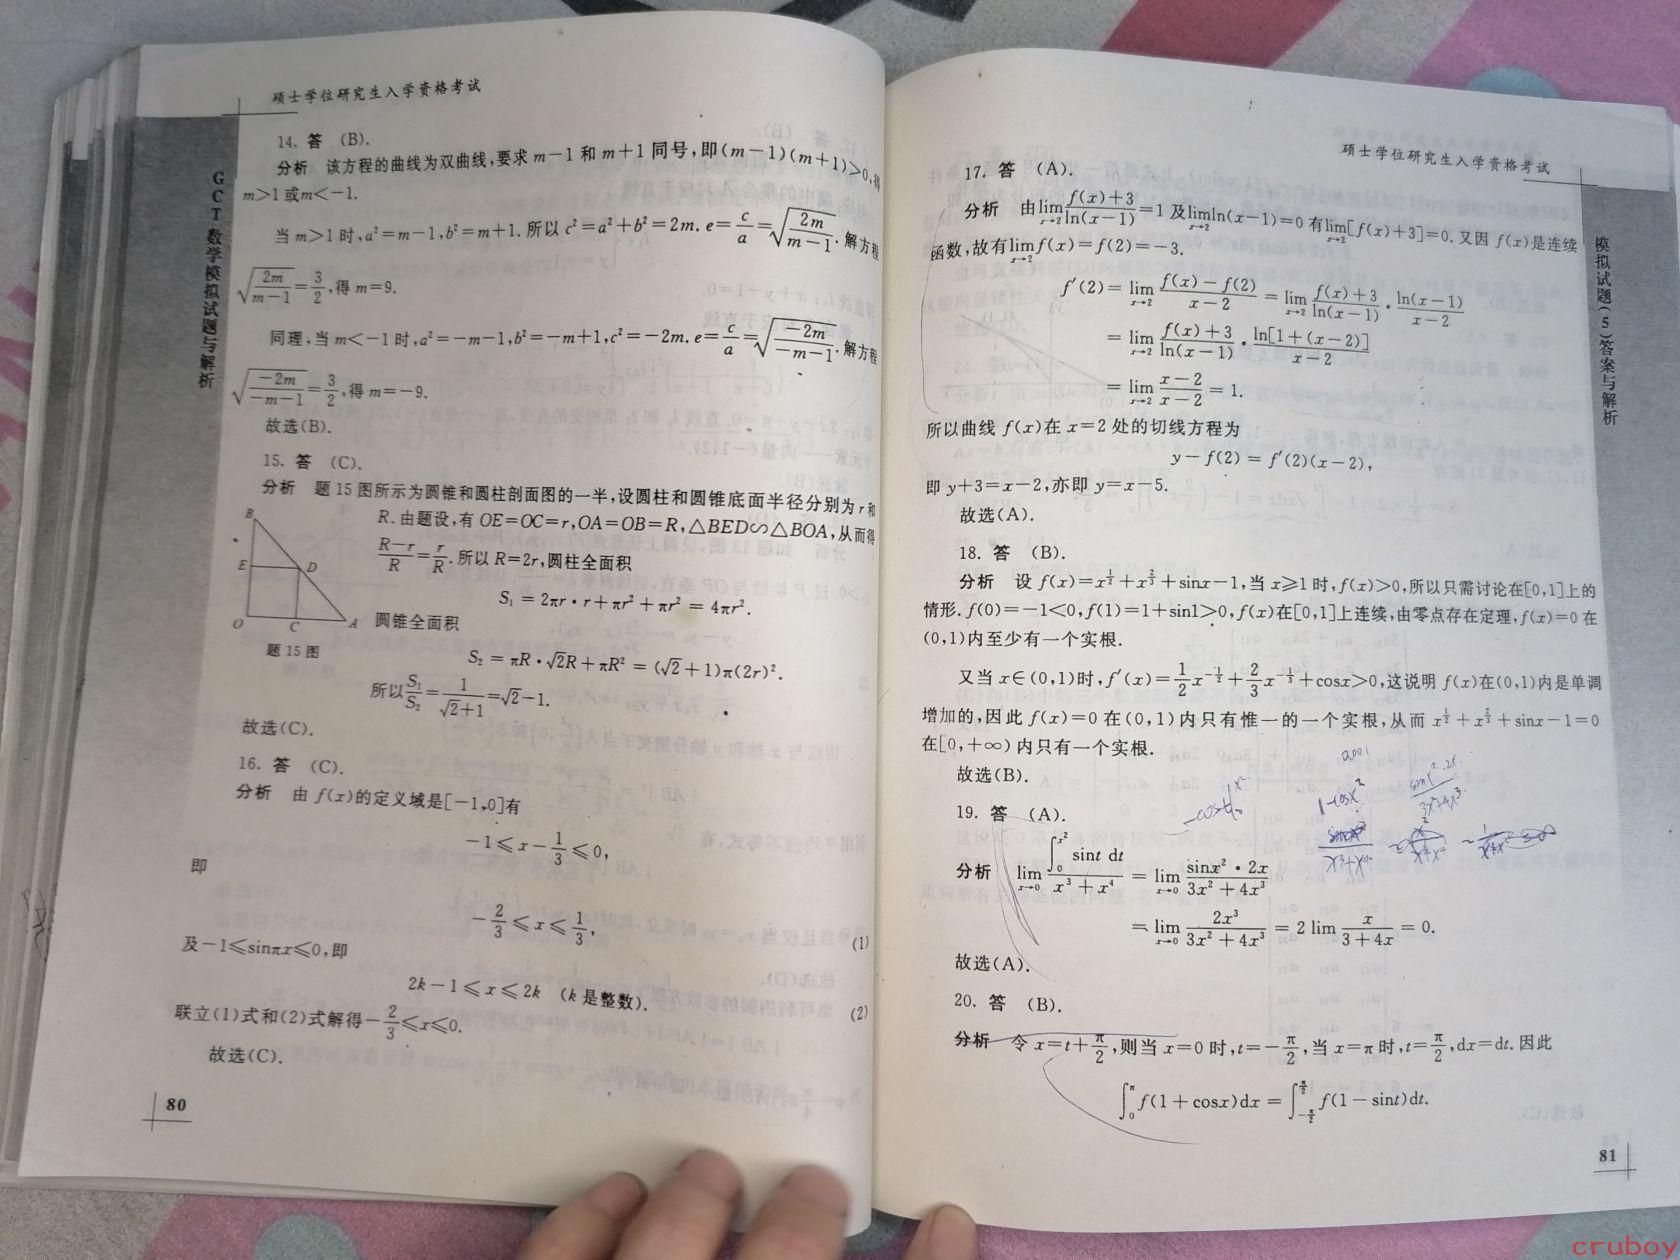 硕士学位研究生入学资格考试
GCT数学模拟试题与解析
14. 答 (B).
分析 该方程的曲线为双曲线,要求 m−1 和 m+1 同号,即(m−1)(m+1)>0,得
m>1 或 m<−1.
当 m>1 时,a²=m−1,b²=m+1. 所以 c²=a²+b²=2m. e=c/a=√(2m/(m−1)). 解方程
√(2m/(m−1))=3/2,得 m=9.
同理,当 m<−1 时,a²=−m−1,b²=−m+1,c²=−2m. e=c/a=√(−2m/(−m−1)). 解方程
√(−2m/(−m−1))=3/2,得 m=−9.
故选(B).
15. 答 (C).
分析 题 15 图所示为圆锥和圆柱剖面图的一半,设圆柱和圆锥底面半径分别为 r 和
R. 由题设,有 OE=OC=r,OA=OB=R,△BED∽△BOA,从而得
(R−r)/R=r/R. 所以 R=2r,圆柱全面积
S₁ = 2πr · r + πr² + πr² = 4πr².
圆锥全面积
S₂ = πR · √2R + πR² = (√2+1)π(2r)².
所以 S₁/S₂=1/(√2+1)=√2−1.
B
E
D
O
C
A
题 15 图
故选(C).
16. 答 (C).
分析 由 f(x)的定义域是[−1,0]有
−1 ⩽ x − 1/3 ⩽ 0,
即
−2/3 ⩽ x ⩽ 1/3, (1)
及−1⩽sinπx⩽0,即
2k−1 ⩽ x ⩽ 2k (k 是整数). (2)
联立(1)式和(2)式解得−2/3⩽x⩽0.
故选(C).
80
硕士学位研究生入学资格考试
模拟试题(5)答案与解析
17. 答 (A).
分析 由lim(x→2) (f(x)+3)/ln(x−1)=1 及lim(x→2)ln(x−1)=0 有lim(x→2)[f(x)+3]=0. 又因 f(x)是连续
函数,故有lim(x→2)f(x)=f(2)=−3.
f′(2) = lim(x→2) (f(x)−f(2))/(x−2) = lim(x→2) (f(x)+3)/ln(x−1) · ln(x−1)/(x−2)
= lim(x→2) (f(x)+3)/ln(x−1) · ln[1+(x−2)]/(x−2)
= lim(x→2) (x−2)/(x−2) = 1.
所以曲线 f(x)在 x=2 处的切线方程为
y−f(2) = f′(2)(x−2),
即 y+3=x−2,亦即 y=x−5.
故选(A).
18. 答 (B).
分析 设 f(x)=x^(1/2)+x^(2/3)+sinx−1,当 x⩾1 时,f(x)>0,所以只需讨论在[0,1]上的
情形. f(0)=−1<0,f(1)=1+sin1>0,f(x)在[0,1]上连续,由零点存在定理,f(x)=0 在
(0,1)内至少有一个实根.
又当 x∈(0,1)时,f′(x)=1/2 x^(−1/2)+2/3 x^(−1/3)+cosx>0,这说明 f(x)在(0,1)内是单调
增加的,因此 f(x)=0 在(0,1)内只有惟一的一个实根,从而 x^(1/2)+x^(2/3)+sinx−1=0
在[0,+∞)内只有一个实根.
故选(B).
19. 答 (A).
分析 lim(x→0) (∫₀^(x²) sint dt)/(x³+x⁴) = lim(x→0) (sinx²·2x)/(3x²+4x³)
= lim(x→0) 2x³/(3x²+4x³) = 2 lim(x→0) x/(3+4x) = 0.
故选(A).
20. 答 (B).
分析 令 x=t+π/2,则当 x=0 时,t=−π/2,当 x=π 时,t=π/2,dx=dt. 因此
∫₀^π f(1+cosx)dx = ∫_(−π/2)^(π/2) f(1−sint)dt.
81
cruboy